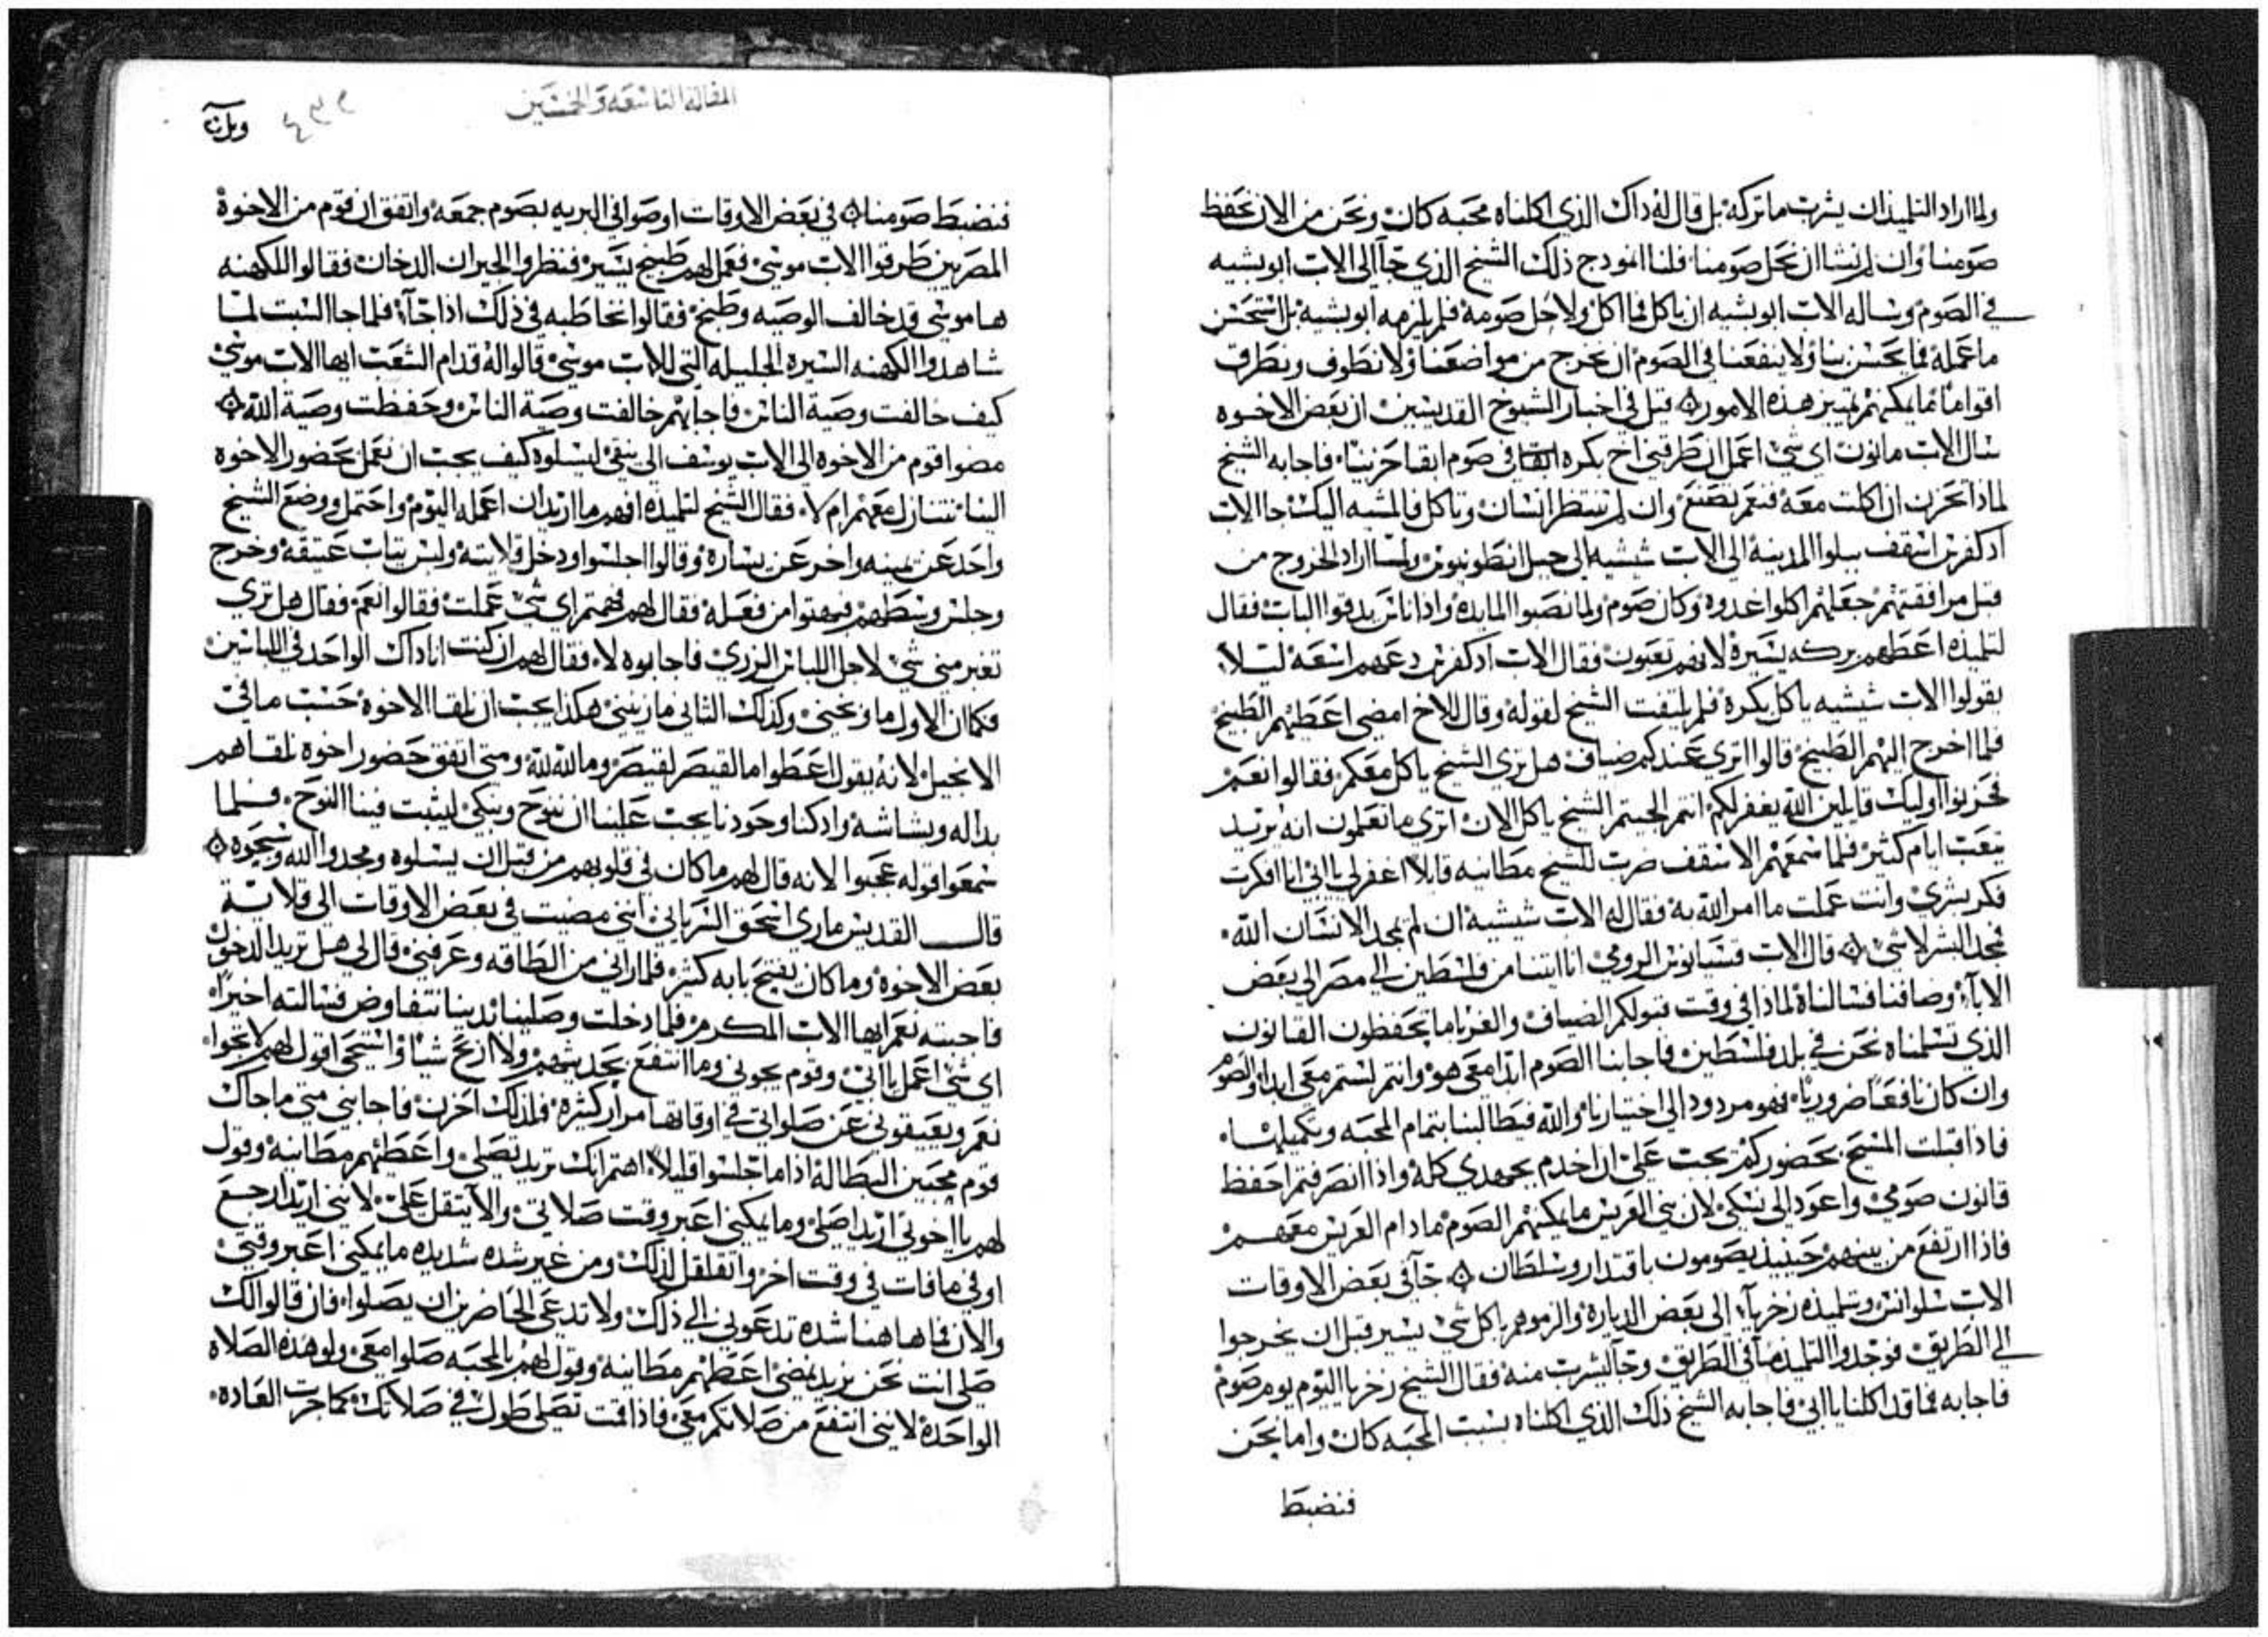 ولما اراد التلميذان يشرب ماتركه بل قال له داك الذي اكلناه محبه كان ونحن من الان نحفظ
صومنا وان لم نشا ان نحل صومنا فلنا انمودج ذلك الشيخ الذي جآ الى الاب ابو بشيه
في الصوم وساله الاب ابو بشيه ان ياكل فما اكل ولا حل صومه فلم يلزمه ابو بشيه بل استحسن
ما عمله فما يحسن بنا ولا ينفعنا في الصوم ان نخرج من مواضعنا ولا نطوف ونطرق
اقواما ما يمكنهم تمييز هذه الامور ۞ قيل في اخبار الشيوخ القديسين ان بعض الاخوه
سال الاب مانون اي شي اعمل ان طرقني اخ بكره في صوم ابقا حزينا فاجابه الشيخ
لماذا تحزن ان اكلت معه فنعم تصنع وان لم تنتظر انسان وتاكل فالمشيه اليك جا الاب
ادكفرس اسقف بيلوا المدينه الى الاب شيشيه الى جبل انطونيوس ولما اراد الخروج من
قبل مرافقتهم جعلهم اكلوا غدوه وكان صوم ولما نصبوا المايده واذا ناس يدقوا الباب فقال
لتلميذه اعطهم بركه يسيره لانهم تعبون فقال الاب ادكفرس دعهم اسعه ليلا
يقولوا الاب شيشيه ياكل بكره فلم يلتفت الشيخ لقوله وقال للاخ امضي اعطيهم الطبيخ
فلما اخرج اليهم الطبيخ قالوا اترى عندكم ضياف هل ترى الشيخ ياكل معكم فقالوا نعم
فحزنوا اوليك قايلين الله يغفر لكم انتم الجيتم الشيخ ياكل الان اترى ما تعلمون انه يريد
يتعب ايام كثير فلما سمعهم الاسقف ضرب للشيخ مطانيه قايلا اغفر لي يا ابي انا افكرت
فكر بشري وانت عملت ما امر الله به فقال له الاب شيشيه ان لم يمجد الانسان الله
فمجد البشر لا شي ۞ قال الاب قسيانوس الرومي انا اتينا من فلسطين الى مصر الى بعض
الابآ وضافنا فسالناه لماذا في وقت قبولكم الضياف والغربا ما تحفظون القانون
الذي تسلمناه نحن في بلد فلسطين فاجابنا الصوم ابدا معي هو وانتم لستم معي ابدا والصوم
وان كان نافعا ضروريا فهو مردود الى اختيارنا والله فيطالبنا بتمام المحبه وتكميلها
فاذا قبلت المسيح بحضوركم يجب علي ان اخدم بجهدي كله واذا انصرفتم احفظ
قانون صومي واعود الى نسكي لان بني العريس ما يمكنهم الصوم ما دام العريس معهم
فاذا ارتفع من بينهم حينيذ يصومون باقتدار وسلطان ۞ جآ في بعض الاوقات
الاب سلوانس وتلميذه زخريا الى بعض الدياره والزموهم ياكل شي يسير قبل ان يخرجوا
الى الطريق فوجدوا التلميذ مآ في الطريق وجآ ليشرب منه فقال الشيخ زخريا اليوم يوم صوم
فاجابه فما قد اكلنا يا ابي فاجابه الشيخ ذلك الذي اكلناه بسبب المحبه كان واما نحن
فنضبط
المقاله التاسعه والخمسين
٤٣٢
فنضبط صومنا ۞ في بعض الاوقات اوصوا في البريه بصوم جمعه واتفق ان قوم من الاخوة
المصريين طرقوا الاب موسى فعمل لهم طبيخ يسير فنظروا الجيران الدخان فقالوا للكهنه
ها موسى قد خالف الوصيه وطبخ فقالوا نخاطبه في ذلك اذا جآ فلما جا السبت لما
شاهدوا الكهنه السيره الجليله التي للاب موسى قالوا له قدام الشعب ايها الاب موسى
كيف خالفت وصية الناس فاجابهم خالفت وصية الناس وحفظت وصية الله ۞
مضوا قوم من الاخوه الى الاب يوسف الى ليسلوه كيف يجب ان نعمل بحضور الاخوة
الينا نتنازل معهم ام لا فقال الشيخ لتلميذه افهم ما اريد ان اعمله اليوم واحتمل ووضع الشيخ
واحد عن يمينه واخر عن يساره وقالوا اجلسوا ودخل قلايته ولبس تياب عتيقه وخرج
وجلس وسطهم فبهتوا من فعله فقال لهم فهمتم اي شي عملت فقالوا نعم فقال هل ترى
تغير مني شي لاجل اللباس الزري فاجابوه لا فقال لهم ان كنت انا داك الواحد في اللباسين
فكما ان الاول ما وبحني وكذلك الثاني ما زينني هكذا يجب ان نلقا الاخوه حسب ما في
الانجيل لانه يقول اعطوا ما لقيصر لقيصر وما لله لله ومتى اتفق حضور اخوة نلقاهم
بداله وبشاشه واد كنا وحودنا يجب علينا ان ننوح ونبكي ليثبت فينا النوح فلما
سمعوا قوله عجبوا لانه قال لهم ما كان في قلوبهم من قبل ان يسلوه ومجدوا الله وسبحوه ۞
قال القديس ماري اسحق السرياني انني مضيت في بعض الاوقات الى قلاية
بعض الاخوه وما كان يفتح بابه كثير فلما راني من الطاقه وعرفني قال لي هل تريد الدخول
فاجبته نعم ايها الاب المكرم فلما دخلت وصلينا بدينا نتفاوض فسالته اخيرا
اي شي اعمل يا ابي وقوم يجوني وما انتفع بحديثهم ولا اربح شيا واستحى اقول لهم لا تجوا
نعم ويعيقوني عن صلواتي في اوقاتها مرار كثيره فلذلك احزن فاجابني متى ما جاك
قوم محبين البطاله اذا ما جلسوا قليلا اهتم انك تريد تصلي واعطيهم مطانيه وقول
لهم يا اخوتي اريد اصلي وما يمكنني اعبر وقت صلاتي والا يتقل علي لانني اريد ارجع
اوفي ما فات في وقت اخر واتقلقل لذلك ومن غير شده شديده ما يمكنني اعبر وقتي
والان فما هاهنا شده تدعوني الى ذلك ولا تدعى الحاضرين ان يصلوا فان قالوا لك
صلي انت نحن نريد نمضي اعطهم مطانيه وقول لهم بالمحبه صلوا معي ولو هذه الصلاه
الواحده لانني انتفع من صلاتكم معي فاذا قمت تصلي طول في صلاتك كما جرت العاده